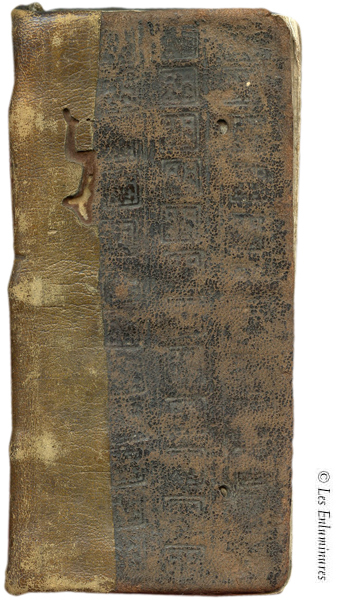 © Les Enluminures